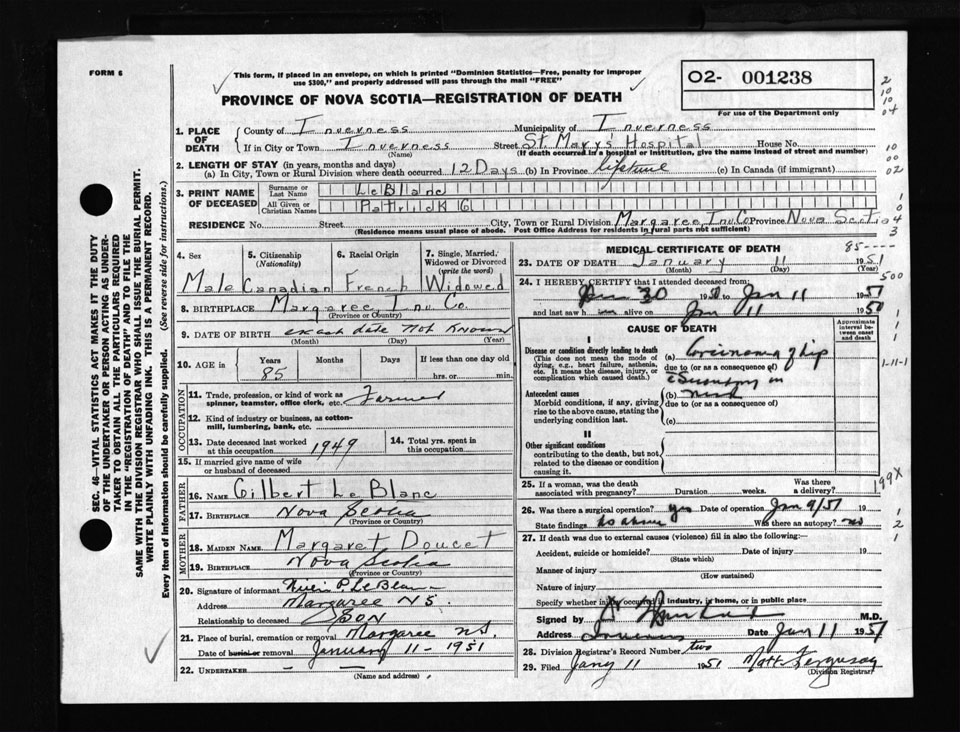 FORM 6
This form, if placed in an envelope, on which is printed "Dominion Statistics—Free, penalty for improper
use $300," and properly addressed will pass through the mail "FREE"
PROVINCE OF NOVA SCOTIA—REGISTRATION OF DEATH
O2- 001238
For use of the Department only
1. PLACE OF DEATH
County of Inverness Municipality of Inverness
If in City or Town Inverness Street St. Mary's Hospital House No.
(Name) (If death occurred in a hospital or institution, give the name instead of street and number)
2. LENGTH OF STAY (in years, months and days)
(a) In City, Town or Rural Division where death occurred 12 Days (b) In Province lifetime (c) In Canada (if immigrant)
3. PRINT NAME OF DECEASED
Surname or Last Name LeBlanc
All Given or Christian Names Patrick G
RESIDENCE No. Street City, Town or Rural Division Margaree, Inv. Co Province Nova Scotia
(Residence means usual place of abode. Post Office Address for residents in rural parts not sufficient)
4. Sex
5. Citizenship (Nationality)
6. Racial Origin
7. Single, Married, Widowed or Divorced (write the word)
Male Canadian French Widowed
8. BIRTHPLACE Margaree, Inv. Co.
(Province or Country)
9. DATE OF BIRTH exact date not known
(Month) (Day) (Year)
10. AGE in
Years Months Days If less than one day old
85 hrs. or min.
OCCUPATION
11. Trade, profession, or kind of work as spinner, teamster, office clerk, etc. Farmer
12. Kind of industry or business, as cotton-mill, lumbering, bank, etc.
13. Date deceased last worked at this occupation 1949
14. Total yrs. spent in this occupation
15. If married give name of wife or husband of deceased
FATHER
16. NAME Gilbert Le Blanc
17. BIRTHPLACE Nova Scotia
(Province or Country)
MOTHER
18. MAIDEN NAME Margaret Doucet
19. BIRTHPLACE Nova Scotia
(Province or Country)
20. Signature of informant P. LeBlanc
Address Margaree N S.
Relationship to deceased Son
21. Place of burial, cremation or removal Margaree N.S.
Date of burial or removal January 11 - 1951
22. UNDERTAKER — —
(Name and address)
MEDICAL CERTIFICATE OF DEATH
85----
23. DATE OF DEATH January 11 1951
(Month) (Day) (Year)
24. I HEREBY CERTIFY that I attended deceased from:
30 1950 to Jan 11 1951
and last saw h im alive on Jan 11 1950
CAUSE OF DEATH
Approximate interval between onset and death
I
Disease or condition directly leading to death
(This does not mean the mode of dying, e.g., heart failure, asthenia, etc. It means the disease, injury, or complication which caused death.)
(a) Carcinoma of lip
due to (or as a consequence of)
Antecedent causes
Morbid conditions, if any, giving rise to the above cause, stating the underlying condition last.
(b)
due to (or as a consequence of)
(c)
II
Other significant conditions
contributing to the death, but not related to the disease or condition causing it.
25. If a woman, was the death associated with pregnancy? Duration weeks. Was there a delivery?
26. Was there a surgical operation? yes Date of operation Jan 9/51 19
State findings as above Was there an autopsy? no
27. If death was due to external causes (violence) fill in also the following:—
Accident, suicide or homicide? Date of injury 19
(State which)
Manner of injury
(How sustained)
Nature of injury
Specify whether injury occurred in industry, in home, or in public place
Signed by M.D.
Address Inverness Date Jan 11 1951
28. Division Registrar's Record Number two
29. Filed Jany 11 1951 Matt Ferguson
(Division Registrar)
SEC. 46—VITAL STATISTICS ACT MAKES IT THE DUTY
OF THE UNDERTAKER OR PERSON ACTING AS UNDER-
TAKER TO OBTAIN ALL THE PARTICULARS REQUIRED
IN THE "REGISTRATION OF DEATH" AND TO FILE THE
SAME WITH THE DIVISION REGISTRAR WHO SHALL ISSUE THE BURIAL PERMIT.
WRITE PLAINLY WITH UNFADING INK. THIS IS A PERMANENT RECORD.
Every item of information should be carefully supplied. (See reverse side for instructions.)
2
10
10
04
10
00
02
1
0
4
3
500
1
1
1
1-11-1
199X
1
2